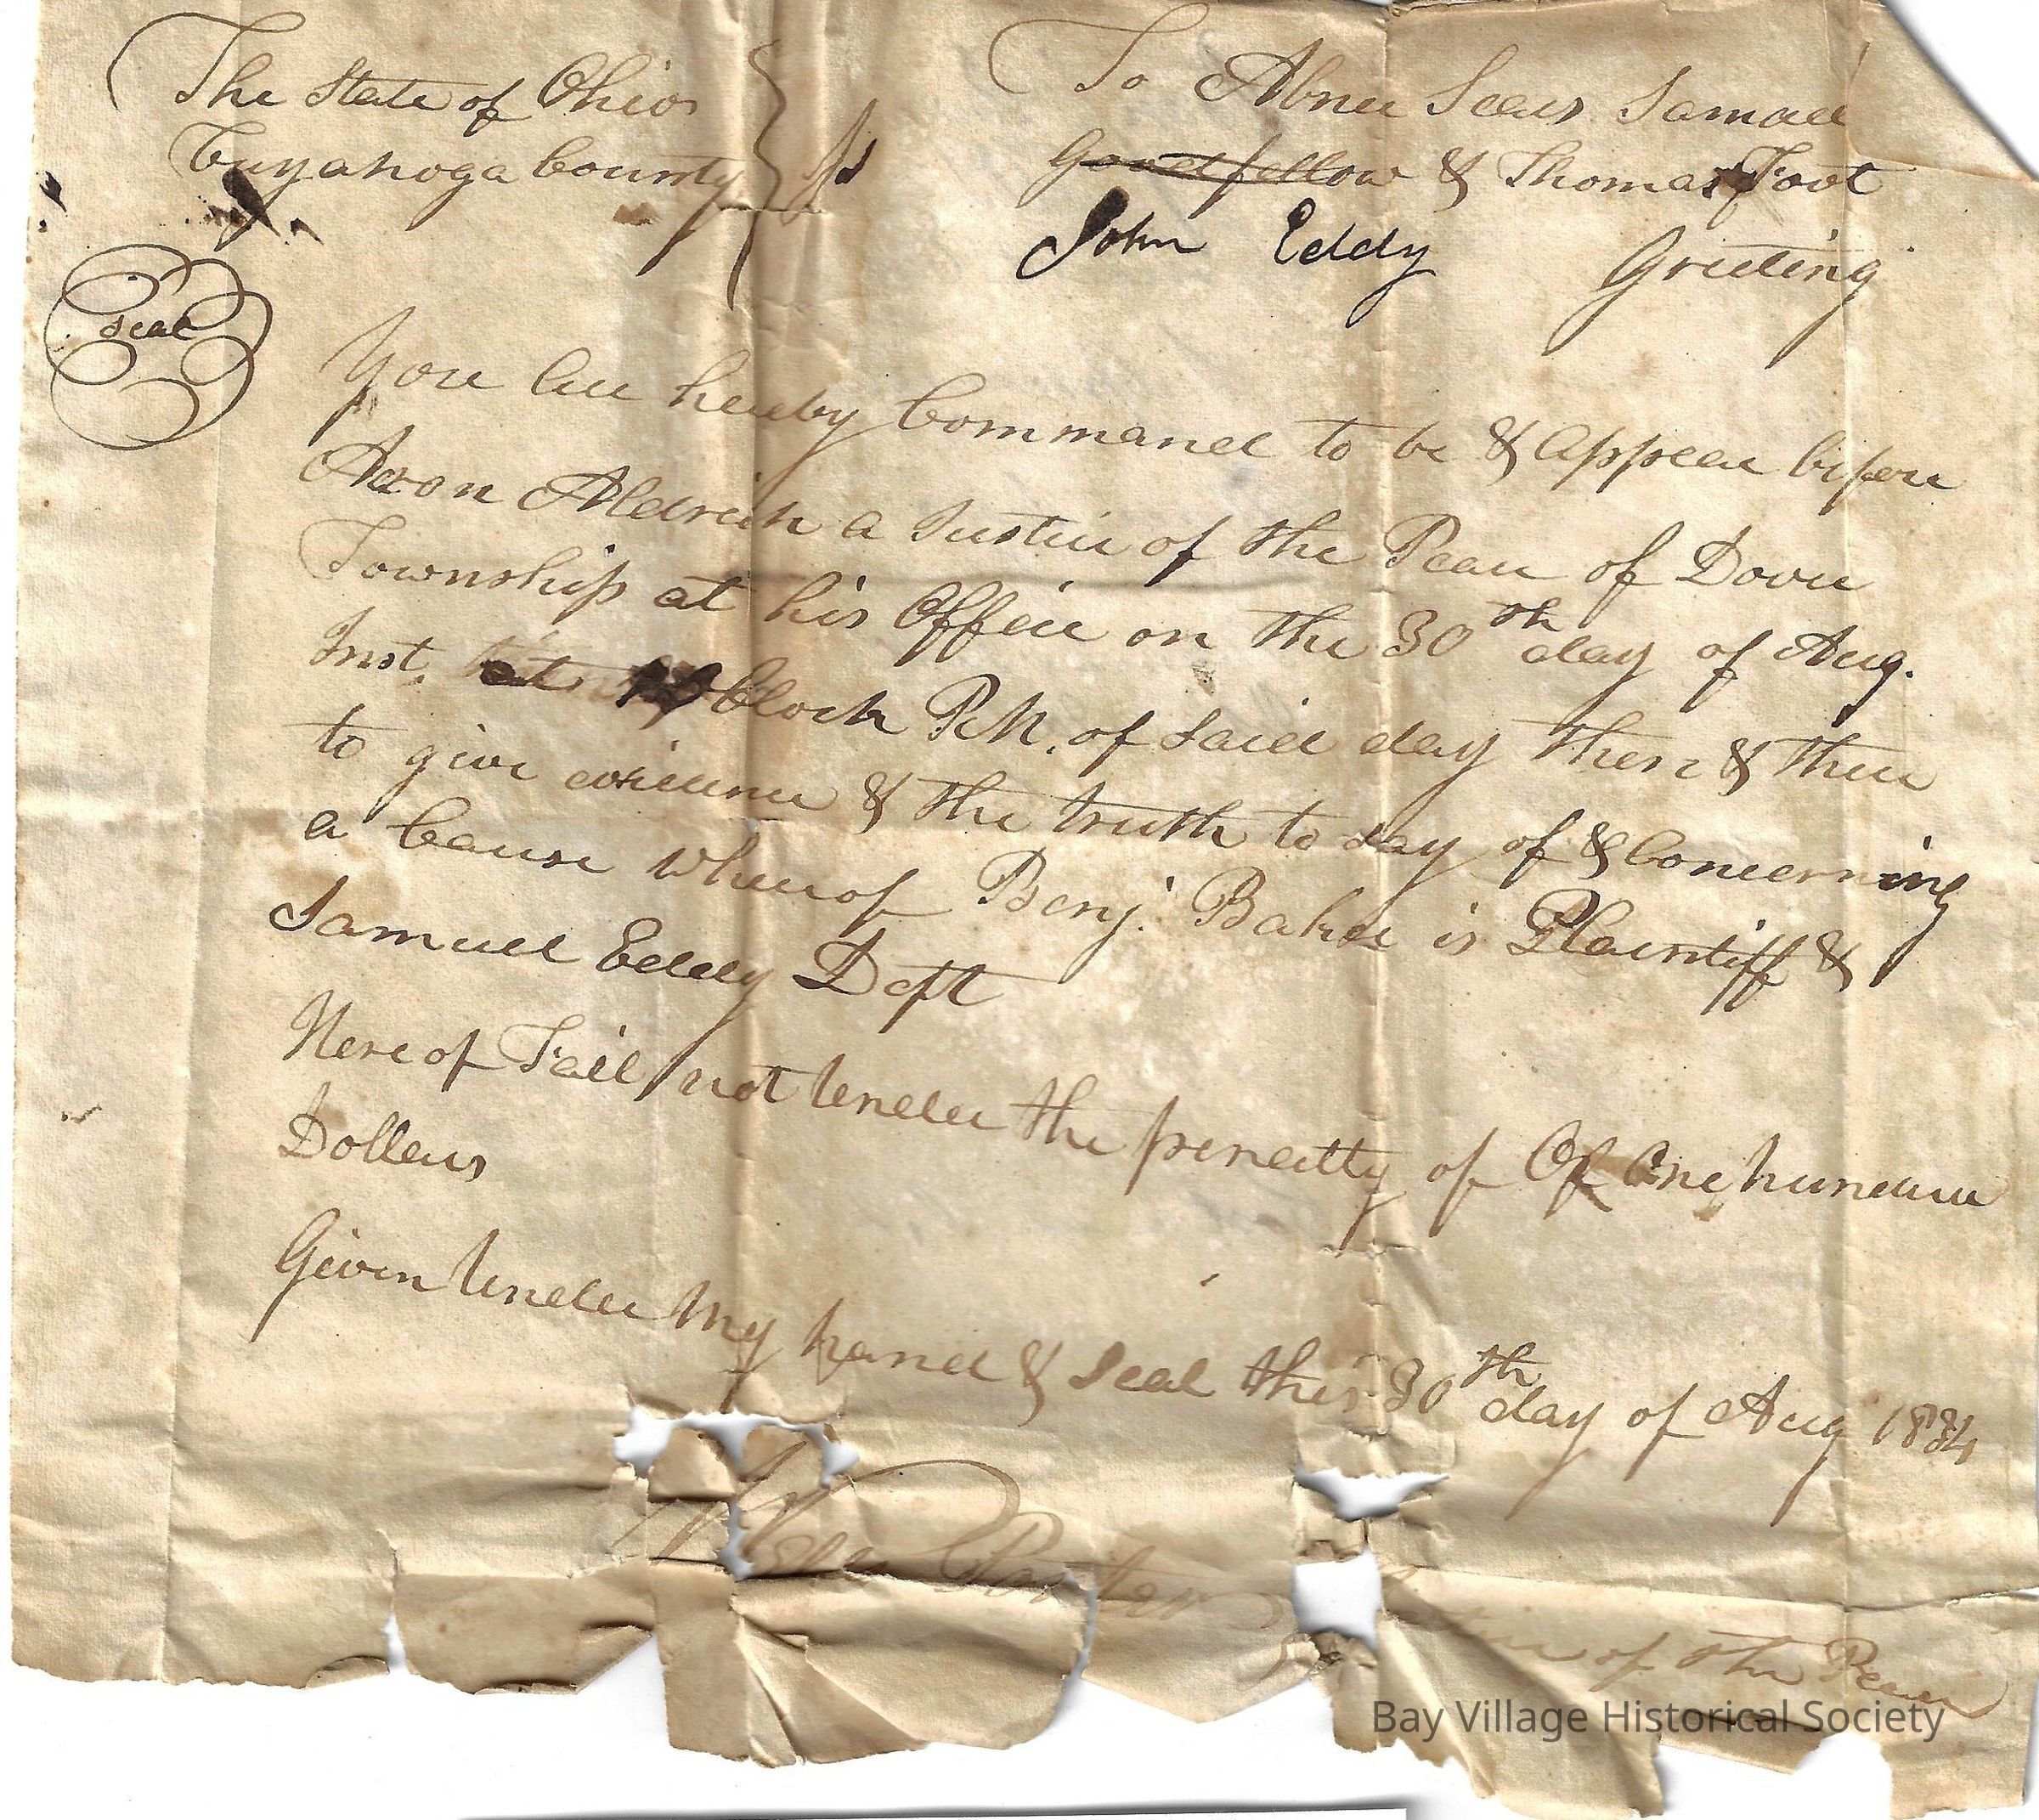 The State of Ohio
Cuyahoga County } ss
To Abner Sears Samuel
Goodfellow & Thomas Foot
John Eddy Greeting
seal
You are hereby Command to be & appear before
Aron Aldrich a Justice of the Peace of Dover
Township at his Office on the 30th day of Aug.
Inst. at Clock P.M. of said day then & there
to give evidence & the truth to say of & Concerning
a Cause whereof Benj. Baker is Plaintiff &
Samuel Eddy Deft
Hereof Fail not Under the penalty of Of One hundred
Dollars
Given Under My hand & seal this 30th day of Aug 1834
of the Peace
Bay Village Historical Society